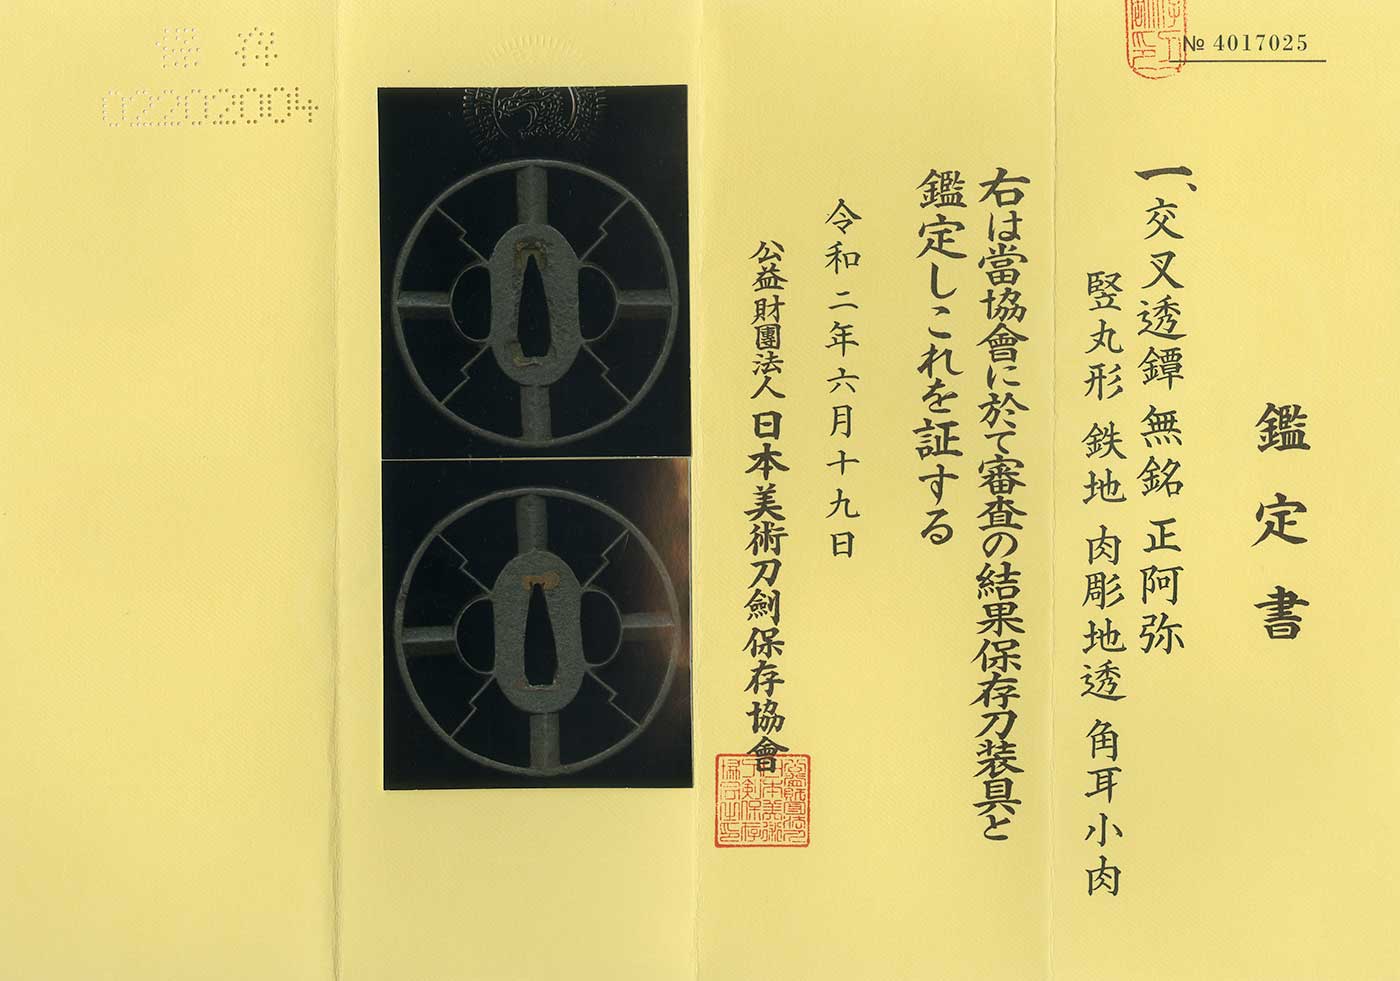 № 4017025
鑑定書
一、交叉透鐔 無銘 正阿弥
竪丸形 鉄地 肉彫地透 角耳小肉
右は當協會に於て審査の結果保存刀装具と
鑑定しこれを証する
令和二年六月十九日
公益財團法人 日本美術刀劍保存協會
保存
02202004